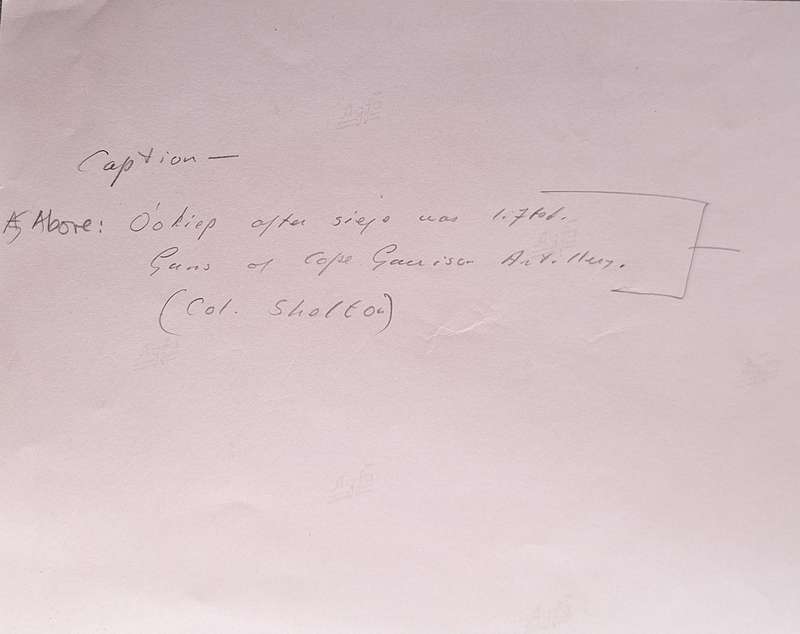 Caption —
Above: O'okiep after siege was lifted.
Guns of Cape Garrison Artillery.
(Col. Shelton)